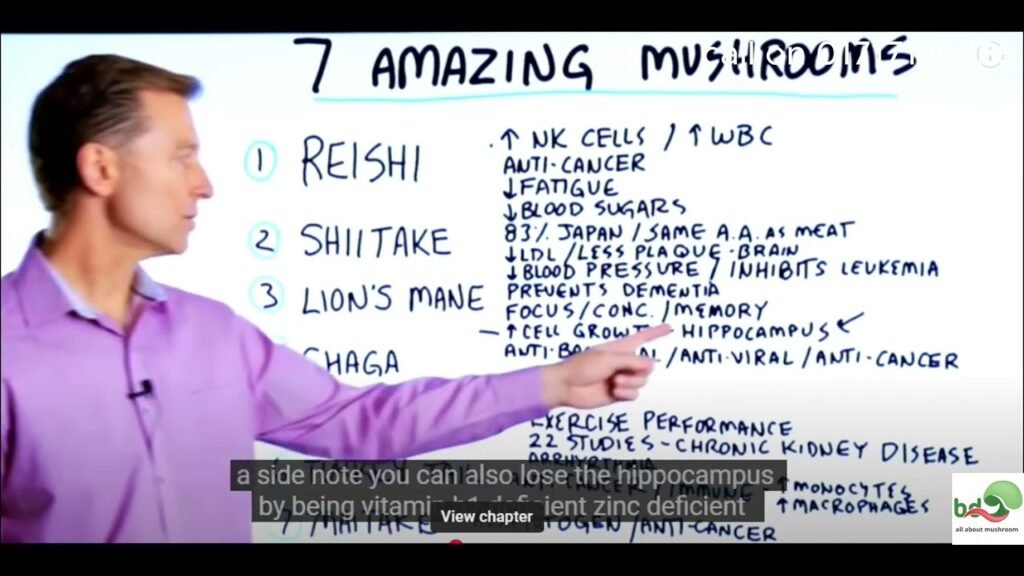 7 AMAZING MUSHROOMS
1 REISHI
↑ NK CELLS / ↑ WBC
ANTI-CANCER
↓ FATIGUE
↓ BLOOD SUGARS
2 SHIITAKE
83% JAPAN / SAME A.A. AS MEAT
↓ LDL / LESS PLAQUE - BRAIN
↓ BLOOD PRESSURE / INHIBITS LEUKEMIA
3 LION'S MANE
PREVENTS DEMENTIA
FOCUS / CONC. / MEMORY
– ↑ CELL HIPPOCAMPUS
CHAGA
/ ANTI-VIRAL / ANTI-CANCER
EXERCISE PERFORMANCE
22 STUDIES - CHRONIC KIDNEY DISEASE
ARRHYTHMIA
IMMUNE ↑ MONOCYTES
↑ MACROPHAGES
MAITAKE
/ ANTI-CANCER
a side note you can also lose the hippocampus
by being zinc deficient
View chapter
bd
all about mushroom